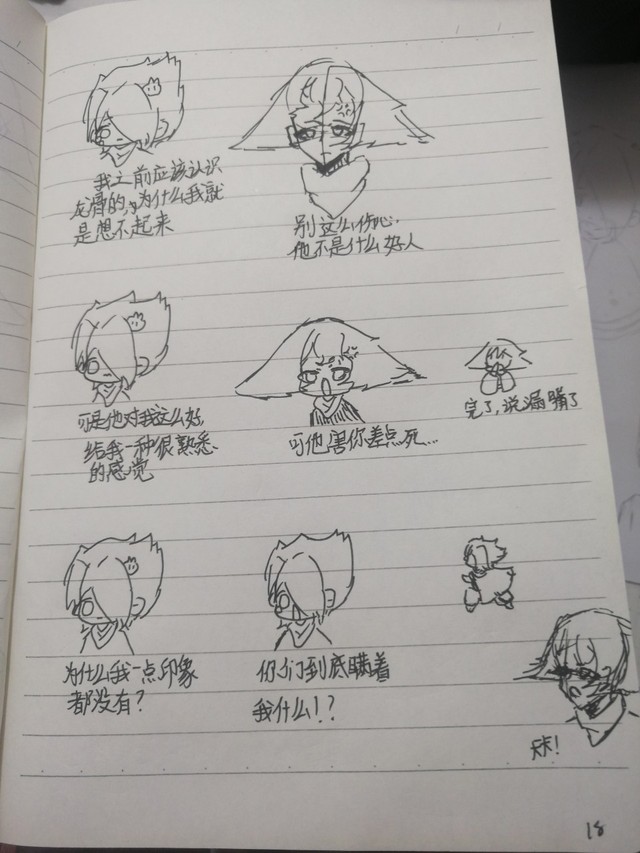 我之前应该认识
龙滑的,为什么我就
是想不起来
别这么伤心.
他不是什么好人
可是他对我这么好,
给我一种很熟悉
的感觉
可他害你差点死…
完了,说漏嘴了
为什么我一点印象
都没有?
你们到底瞒着
我什么!?
卡!
18